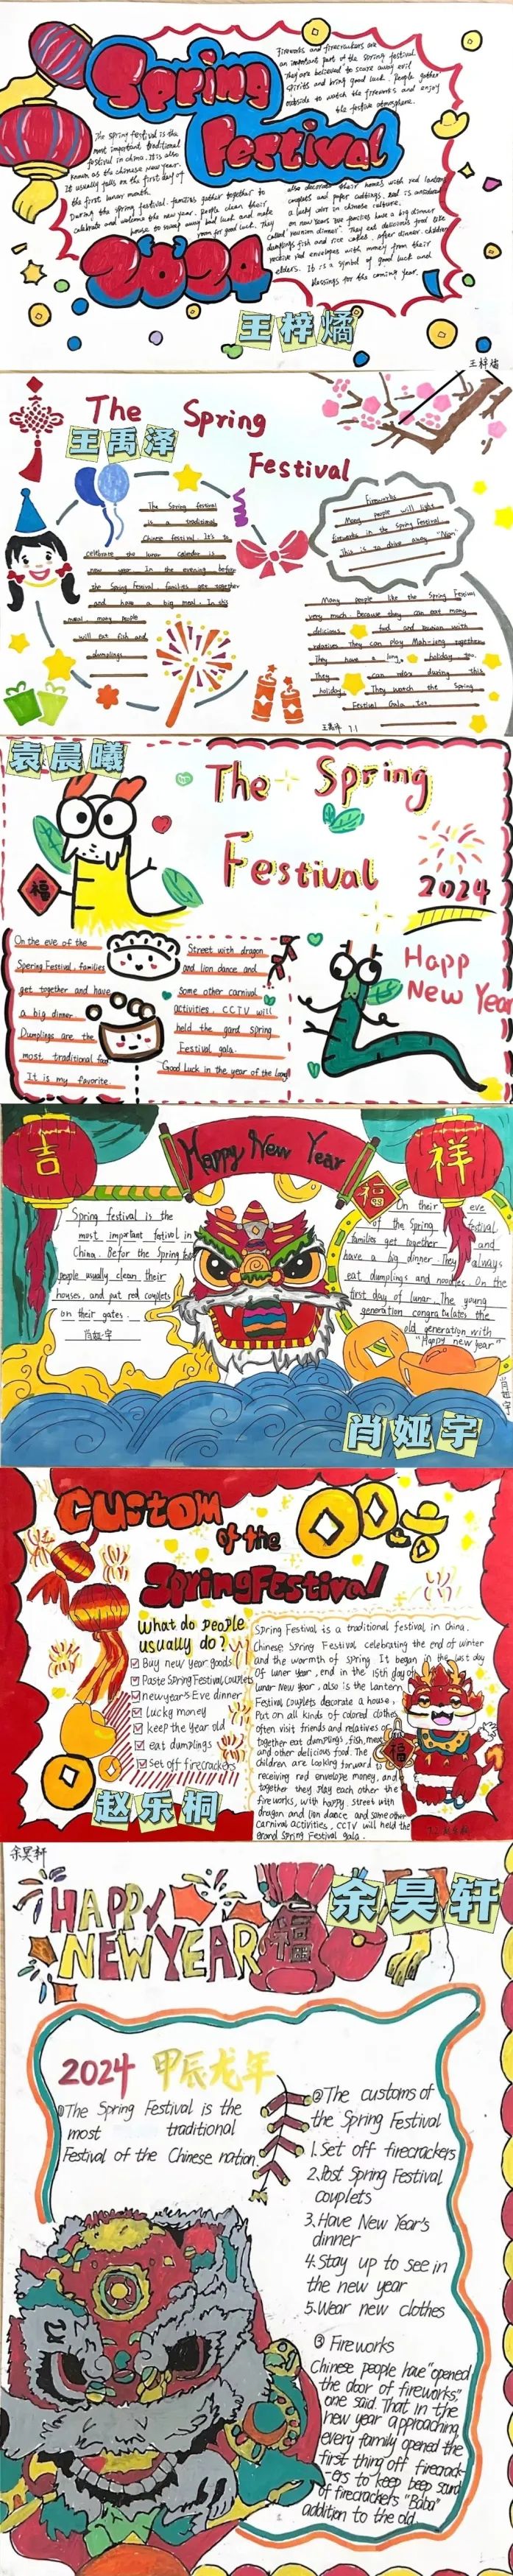 Spring
Festival
Fireworks and firecrackers are
an important part of the spring festival.
They are believed to scare away evil
spirits and bring good luck. People gather
outside to watch the fireworks and enjoy
the festive atmosphere.
The spring festival is the
most important traditional
festival in china. It is also
known as the chinese new year.
It usually falls on the first day of
the first lunar month.
During the spring festival, families gather together to
celebrate and welcome the new year. people clean their
house to sweep away bad luck and make
room for good luck. They
also decorate their homes with red lanterns
couplets and paper cuttings. Red is considered
a lucky color in chinese culture.
on new year's eve families have a big dinner
called "reunion dinner". They eat delicious food like
dumplings fish and rice cakes. after dinner, children
receive red envelopes with money from their
elders. It is a symbol of good luck and
blessings for the coming year.
2024
王梓燏
王梓燏
The Spring
Festival
王禹泽
The Spring festival
is a traditional
Chinese festival. It's to
celebrate the lunar calendar is
new year In the evening before
the Spring Festival families get together
and have a big meal. In this
meal, many people
will eat fish and
dumplings
Fireworks
Many people will light
fireworks in the spring festival
This is to drive away "Nian"
Many people like the Spring Festival
very much. Because they can eat many
delicious food and reunion with
relatives They can play Mah-jong together
They have a long holiday too.
They can relax during this
holiday. They watch the Spring
Festival Gala, too.
王禹泽 7.1
袁晨曦
The Spring
Festival
2024
福
Happ
New Year
On the eve of the
Spering Festival, families
get together and have
a big dinner.
Dumplings are the
most traditional food.
It is my favorite.
Street with dragon
and lion dance and
some other carnival
activities, CCTV will
held the gard spring
Festival gala.
Good Luck in the year of the long
吉
祥
Happy New Year
福
Spring festival is the
most important fativol in
China. Befor the Spring fes
people usually clean their
houses, and put red couplets
on their gates.
肖娅宇
On their eve
of the Spring festival
families get together and
have a big dinner. They always
eat dumplings and noodles. On the
first day of lunar. The young
generation congratulates the
old generation with
"Happy new year"
肖娅宇
肖娅宇
Custom
of the
Spring Festival
What do people
usually do?
Buy new year goods
Paste Spring Festival Couplets
newyear's Eve dinner
lucky money
keep the year old
eat dumplings
set off firecrackers
Spring Festival is a traditional festival in China.
Chinese Spring Festival celebrating the end of winter
and the warmth of spring. It began in the last day
Of luner year, end in the 15th day of
lunar New year, also is the Lantern
Festival couplets decorate a house,
Put on all kinds of colored clothes,
often visit friends and relatives or
together eat dumplings, fish, meat
and other delicious food. The
children are looking forward to
receiving red envelope money, and
together they play each other the
fireworks, with happy. street with
dragon and lion dance and some other
Carnival Activities, CCTV will held the
grand Spring Festival gala.
福
赵乐桐
余昊轩
HAPPY
NEW YEAR
福
余昊轩
2024 甲辰龙年
①The Spring Festival is the
most traditional
Festival of the Chinese nation.
②The customs of
the Spring Festival
1.Set off firecrackers
2.Post Spring Festival
couplets
3.Have New Year's
dinner
4.Stay up to see in
the new year
5.Wear new clothes
③ Fireworks
Chinese people have "opened
the door of fireworks,"
one said. That in the
new year approaching,
every family opened the
first thing off firecrack-
-ers to keep beep sound
of firecrackers "Baba"
addition to the old.